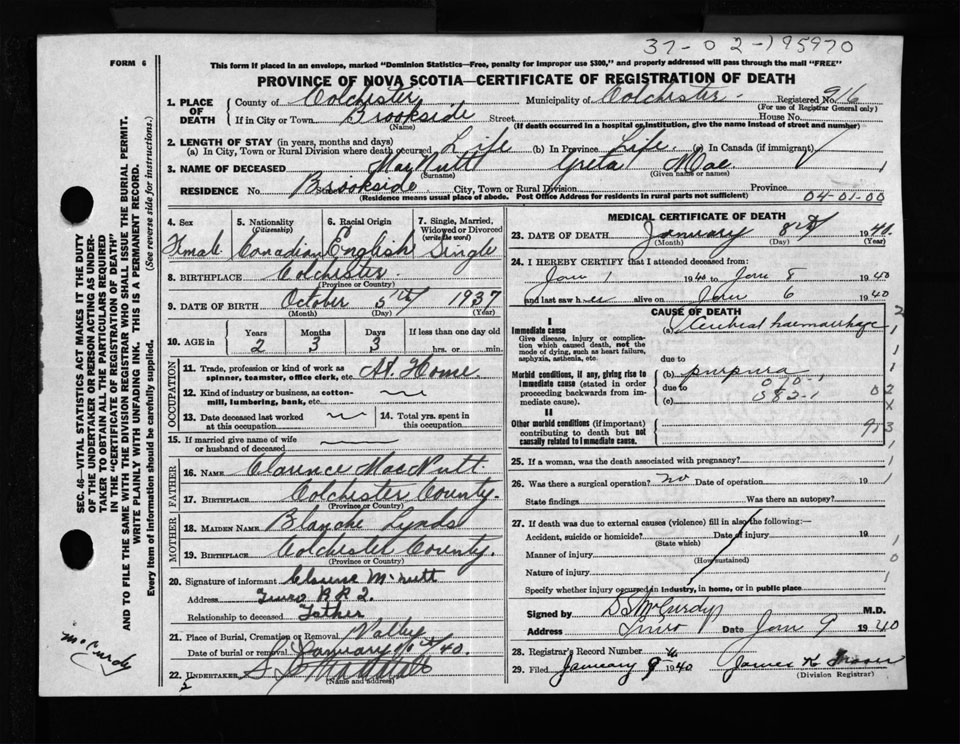 37-02-195970
FORM 6
This form if placed in an envelope, marked "Dominion Statistics—Free, penalty for improper use $300," and properly addressed will pass through the mail "FREE"
PROVINCE OF NOVA SCOTIA—CERTIFICATE OF REGISTRATION OF DEATH
1. PLACE OF DEATH County of Colchester Municipality of Colchester. Registered No. 916
(For use of Registrar General only)
If in City or Town Brookside Street House No.
(Name) (If death occurred in a hospital or institution, give the name instead of street and number)
2. LENGTH OF STAY (in years, months and days)
(a) In City, Town or Rural Division where death occurred Life (b) In Province Life. (c) In Canada (if immigrant)
3. NAME OF DECEASED MacNutt Greta Mae. 1
(Surname) (Given name or names)
RESIDENCE No. Brookside City, Town or Rural Division Province
(Residence means usual place of abode. Post Office Address for residents in rural parts not sufficient) 04-01-00
4. Sex 5. Nationality (Citizenship) 6. Racial Origin 7. Single, Married, Widowed or Divorced (write the word)
Canadian English Single
8. BIRTHPLACE Colchester.
(Province or County)
9. DATE OF BIRTH October 5th 1937
(Month) (Day) (Year)
10. AGE in Years Months Days If less than one day old
2 3 3 hrs. or min.
OCCUPATION
11. Trade, profession or kind of work as spinner, teamster, office clerk, etc. At Home.
12. Kind of industry or business, as cotton-mill, lumbering, bank, etc.
13. Date deceased last worked at this occupation 14. Total yrs. spent in this occupation
15. If married give name of wife or husband of deceased
FATHER
16. NAME Clarence MacNutt.
17. BIRTHPLACE Colchester County.
(Province or County)
MOTHER
18. MAIDEN NAME Blanche Lynds
19. BIRTHPLACE Colchester County.
(Province or County)
20. Signature of informant McNutt
Address Truro RR 2.
Relationship to deceased Father
21. Place of Burial, Cremation or Removal Valley
Date of burial or removal January 10th 40.
22. UNDERTAKER
(Name and address)
MEDICAL CERTIFICATE OF DEATH
23. DATE OF DEATH January 8th 1940.
(Month) (Day) (Year)
24. I HEREBY CERTIFY that I attended deceased from:
Jan 1 1940 to Jan 8 1940
and last saw her alive on Jan 6 1940
CAUSE OF DEATH
I
Immediate cause
Give disease, injury or complication which caused death, not the mode of dying, such as heart failure, asphyxia, asthenia, etc.
(a) Cerebral haemorrhage
due to
Morbid conditions, if any, giving rise to immediate cause (stated in order proceeding backwards from immediate cause).
(b) purpura
due to
(c)
II
Other morbid conditions (if important) contributing to death but not causally related to immediate cause.
25. If a woman, was the death associated with pregnancy?
26. Was there a surgical operation? no Date of operation 19
State findings Was there an autopsy?
27. If death was due to external causes (violence) fill in also the following:—
Accident, suicide or homicide? Date of injury 19
(State which)
Manner of injury
(How sustained)
Nature of injury
Specify whether injury occurred in industry, in home, or in public place
Signed by D S McCurdy M.D.
Address Truro Date Jan 9 1940
28. Registrar's Record Number
29. Filed January 9 1940 James K
(Division Registrar)
SEC. 46—VITAL STATISTICS ACT MAKES IT THE DUTY
OF THE UNDERTAKER OR PERSON ACTING AS UNDER-
TAKER TO OBTAIN ALL THE PARTICULARS REQUIRED
IN THE "CERTIFICATE OF REGISTRATION OF DEATH"
AND TO FILE THE SAME WITH THE DIVISION REGISTRAR WHO SHALL ISSUE THE BURIAL PERMIT.
WRITE PLAINLY WITH UNFADING INK. THIS IS A PERMANENT RECORD.
Every item of information should be carefully supplied. (See reverse side for instructions.)
McCurdy